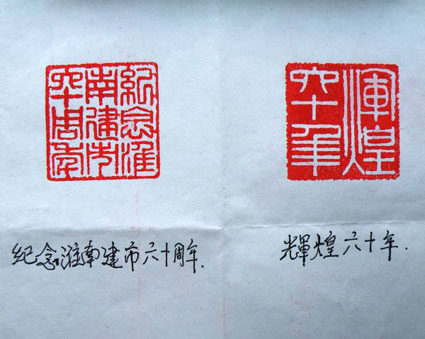 紀念淮
南建市
六十周年
煇煌
六十年
纪念淮南建市六十周年.
輝煌六十年.